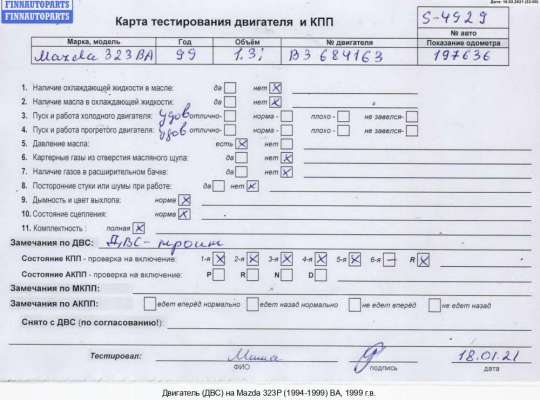 FINNAUTOPARTS
FINNAUTOPARTS
FINNAUTOPARTS
Карта тестирования двигателя и КПП
S-4929
№ авто
Марка, модель Год Объём № двигателя Показание одометра
Mazda 323BA 99 1.3i B3 684163 197636
1. Наличие охлаждающей жидкости в масле: да нет X
2. Наличие масла в охлаждающей жидкости: да нет X
3. Пуск и работа холодного двигателя: удов отлично- норма - плохо - не завелся-
4. Пуск и работа прогретого двигателя: удов отлично- норма - плохо - не завелся-
5. Давление масла: есть X нет
6. Картерные газы из отверстия масляного щупа: да нет X
7. Наличие газов в расширительном бачке: да нет X
8. Посторонние стуки или шумы при работе: да нет X
9. Дымность и цвет выхлопа: норма X
10. Состояние сцепления: норма X
11. Комплектность : полная X
Замечания по ДВС: ДВС-
Состояние КПП - проверка на включение: 1-я X 2-я X 3-я X 4-я X 5-я X 6-я – R X
Состояние АКПП - проверка на включение: P R N D
Замечания по МКПП:
Замечания по АКПП: едет вперёд нормально едет назад нормально не едет вперёд не едет назад
Снято с ДВС (по согласованию!):
Тестировал: Миша 18.01.21
ФИО подпись дата
Двигатель (ДВС) на Mazda 323P (1994-1999) BA, 1999 г.в.